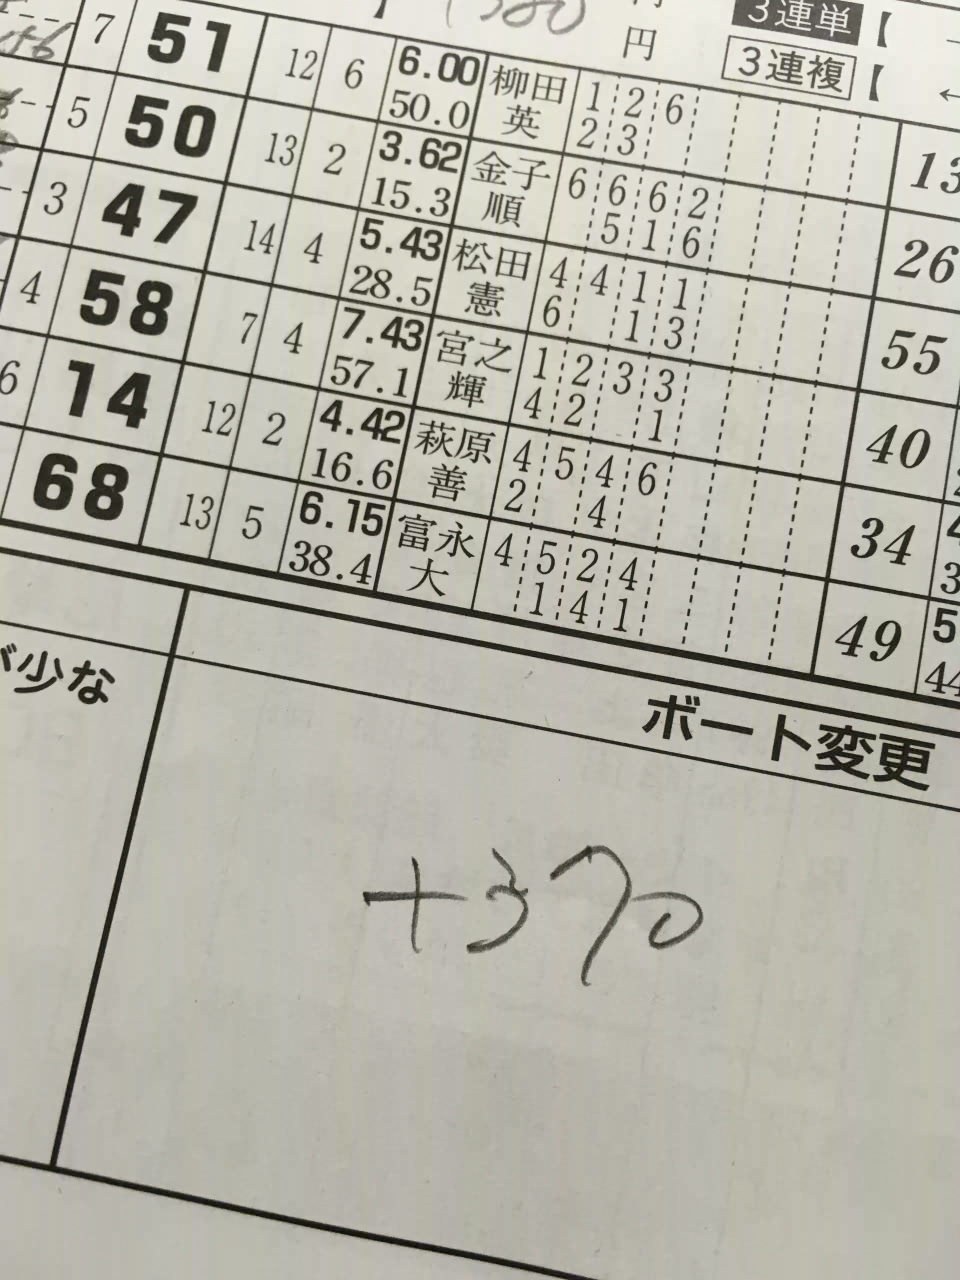 円
3連単【
3連複【
7 51 12 6 6.00 柳田 1 2 6
50.0 英 2 3 13
5 50 13 2 3.62 金子 6 6 6 2
15.3 順 5 1 6 26
3 47 14 4 5.43 松田 4 4 1 1
28.5 憲 6 1 3 55
4 58 7 4 7.43 宮之 1 2 3 3
57.1 輝 4 2 1 40
6 14 12 2 4.42 萩原 4 5 4 6
16.6 善 2 4 34
68 13 5 6.15 富永 4 5 2 4
38.4 大 1 4 1 49
が少な
ボート変更
+370